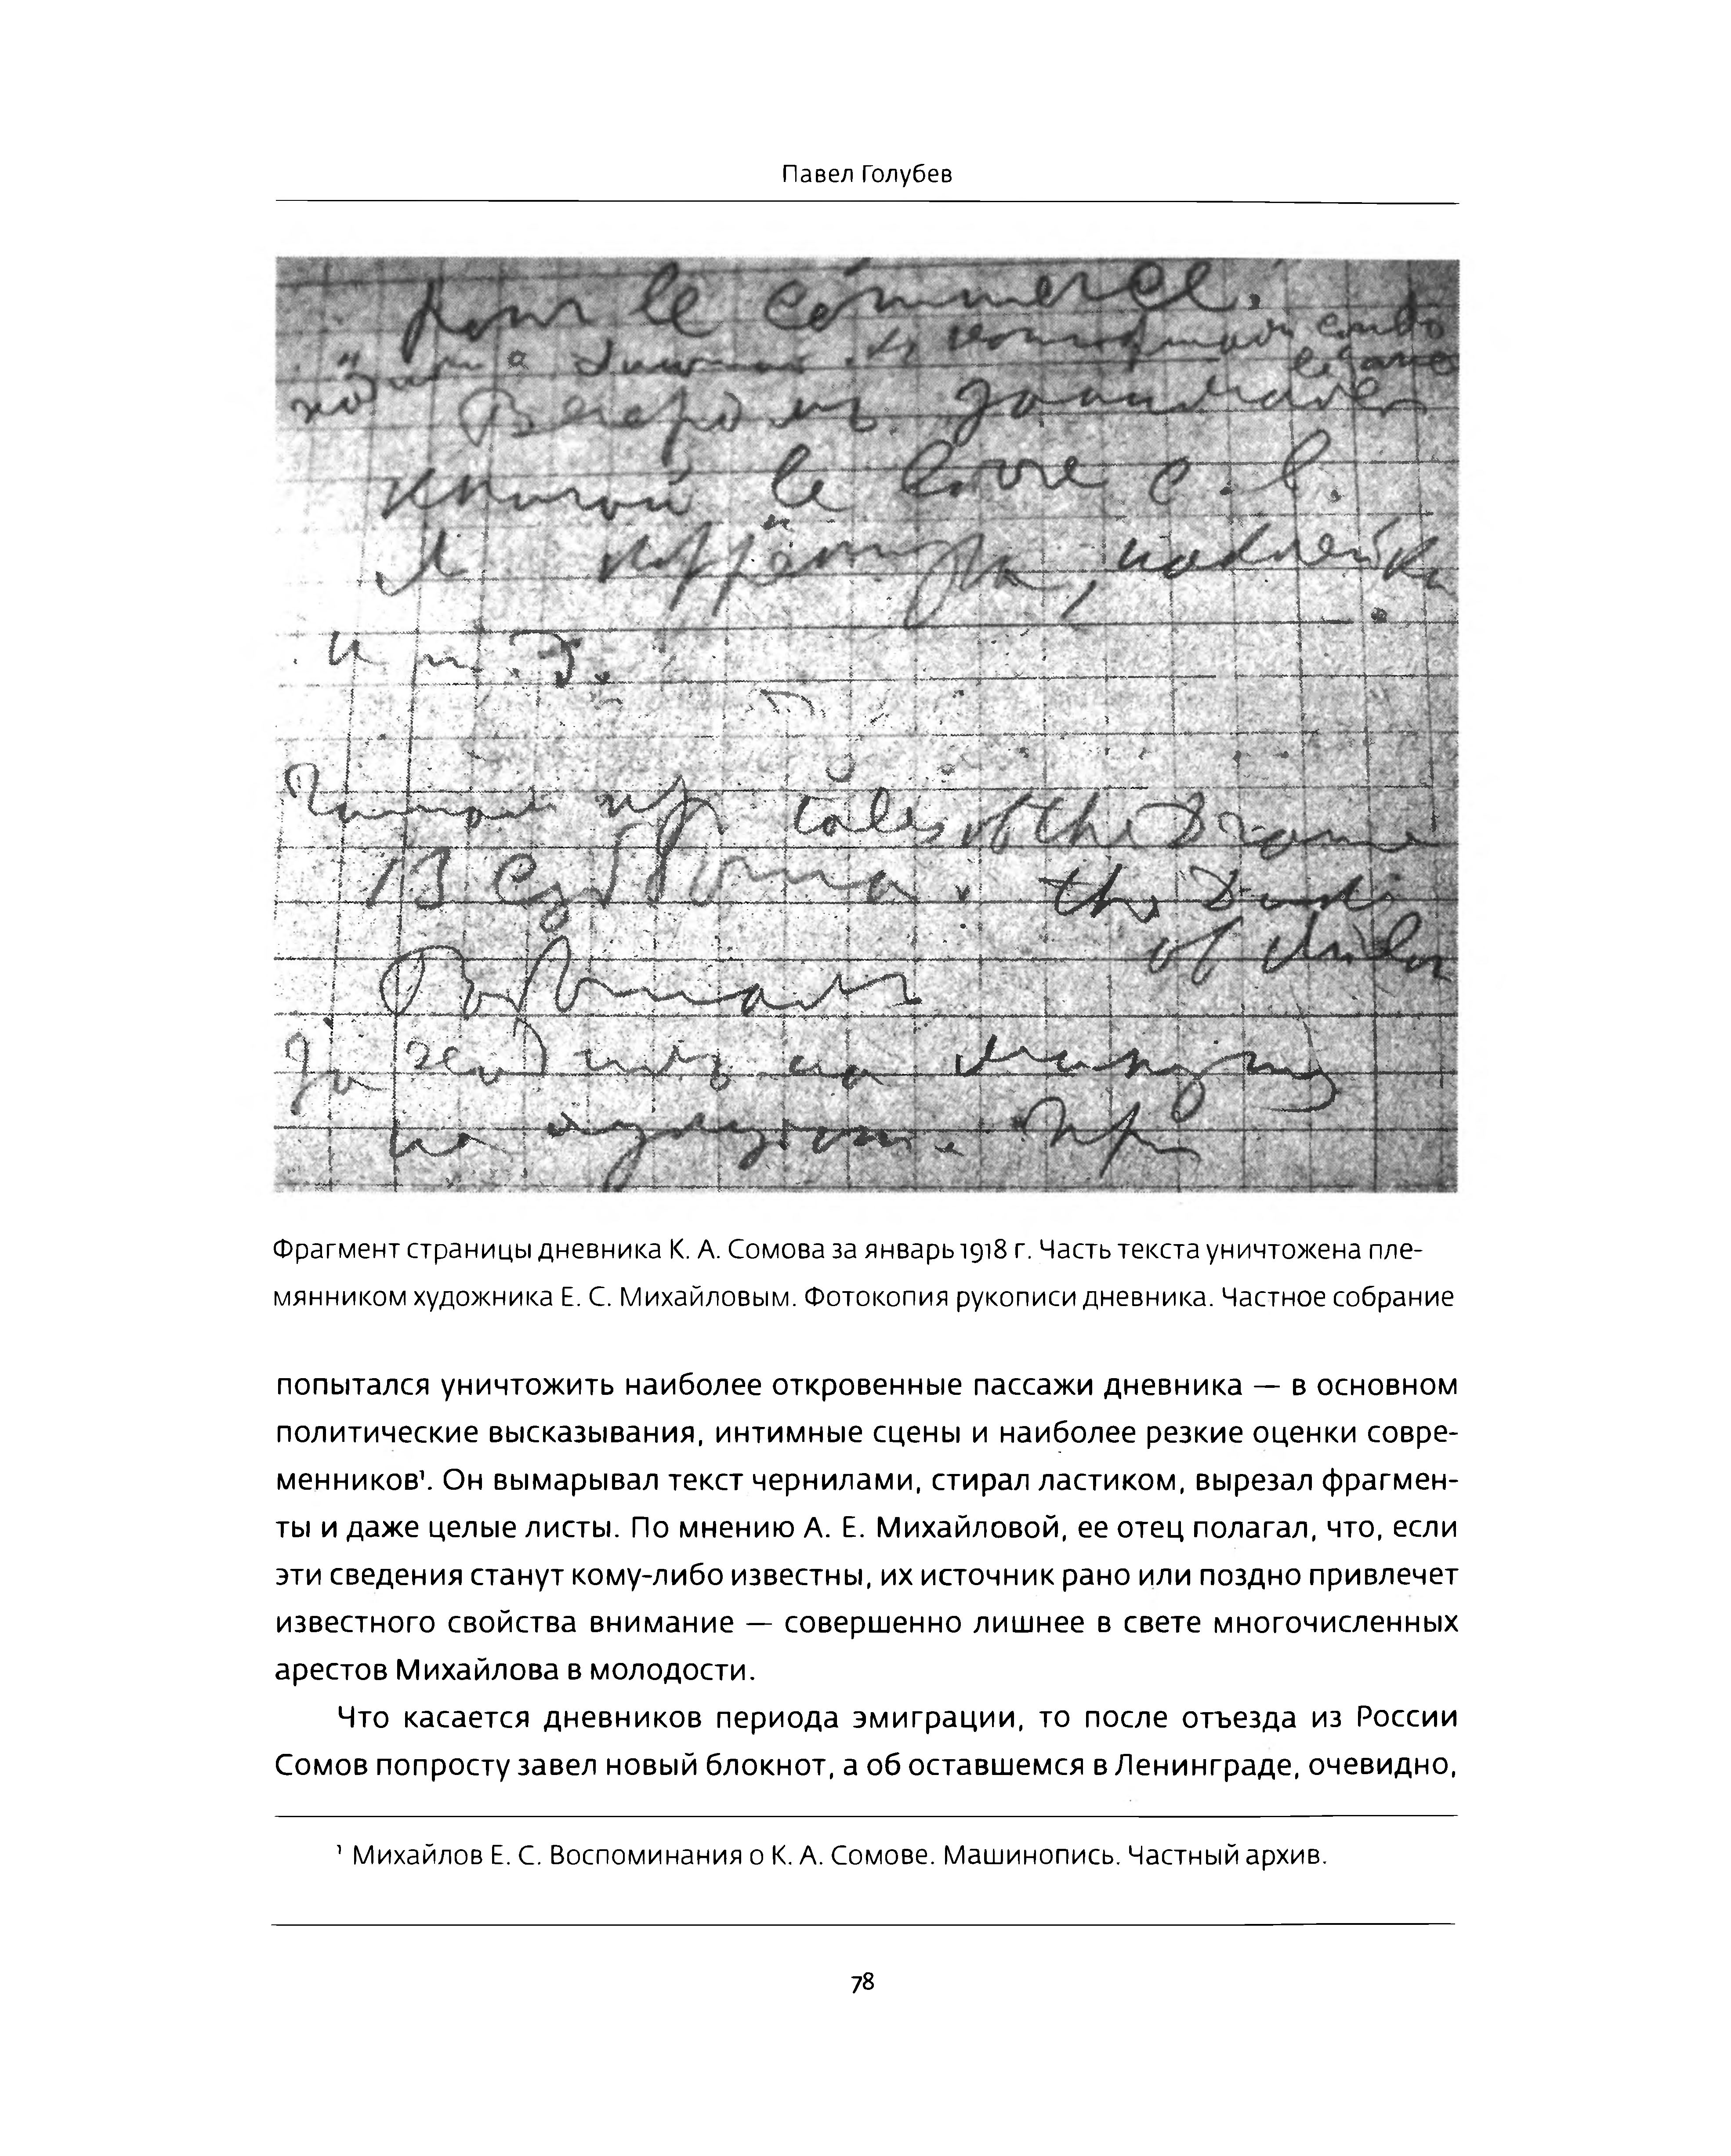 Павел Голубев
pour le commerce.
Вечером занимался
книгой le livre
корректура, наклейка
и т. д.
Читал tales of the
13 Суббота. the
of
Работал
на минуту
Фрагмент страницы дневника К. А. Сомова за январь 1918 г. Часть текста уничтожена пле-
мянником художника Е. С. Михайловым. Фотокопия рукописи дневника. Частное собрание
попытался уничтожить наиболее откровенные пассажи дневника — в основном
политические высказывания, интимные сцены и наиболее резкие оценки совре-
менников¹. Он вымарывал текст чернилами, стирал ластиком, вырезал фрагмен-
ты и даже целые листы. По мнению А. Е. Михайловой, ее отец полагал, что, если
эти сведения станут кому-либо известны, их источник рано или поздно привлечет
известного свойства внимание — совершенно лишнее в свете многочисленных
арестов Михайлова в молодости.
Что касается дневников периода эмиграции, то после отъезда из России
Сомов попросту завел новый блокнот, а об оставшемся в Ленинграде, очевидно,
¹ Михайлов Е. С. Воспоминания о К. А. Сомове. Машинопись. Частный архив.
78